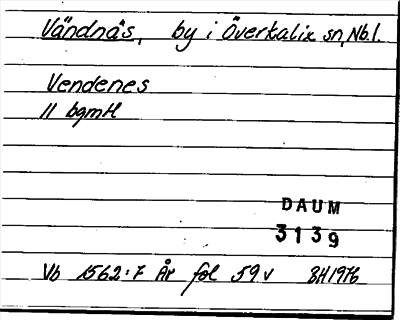 Vändnäs, by i Överkalix sn, Nb.l.
Vendenes
11 bgmtl
DAUM
3139
Vb 1562:7 År fol 59v BH1976